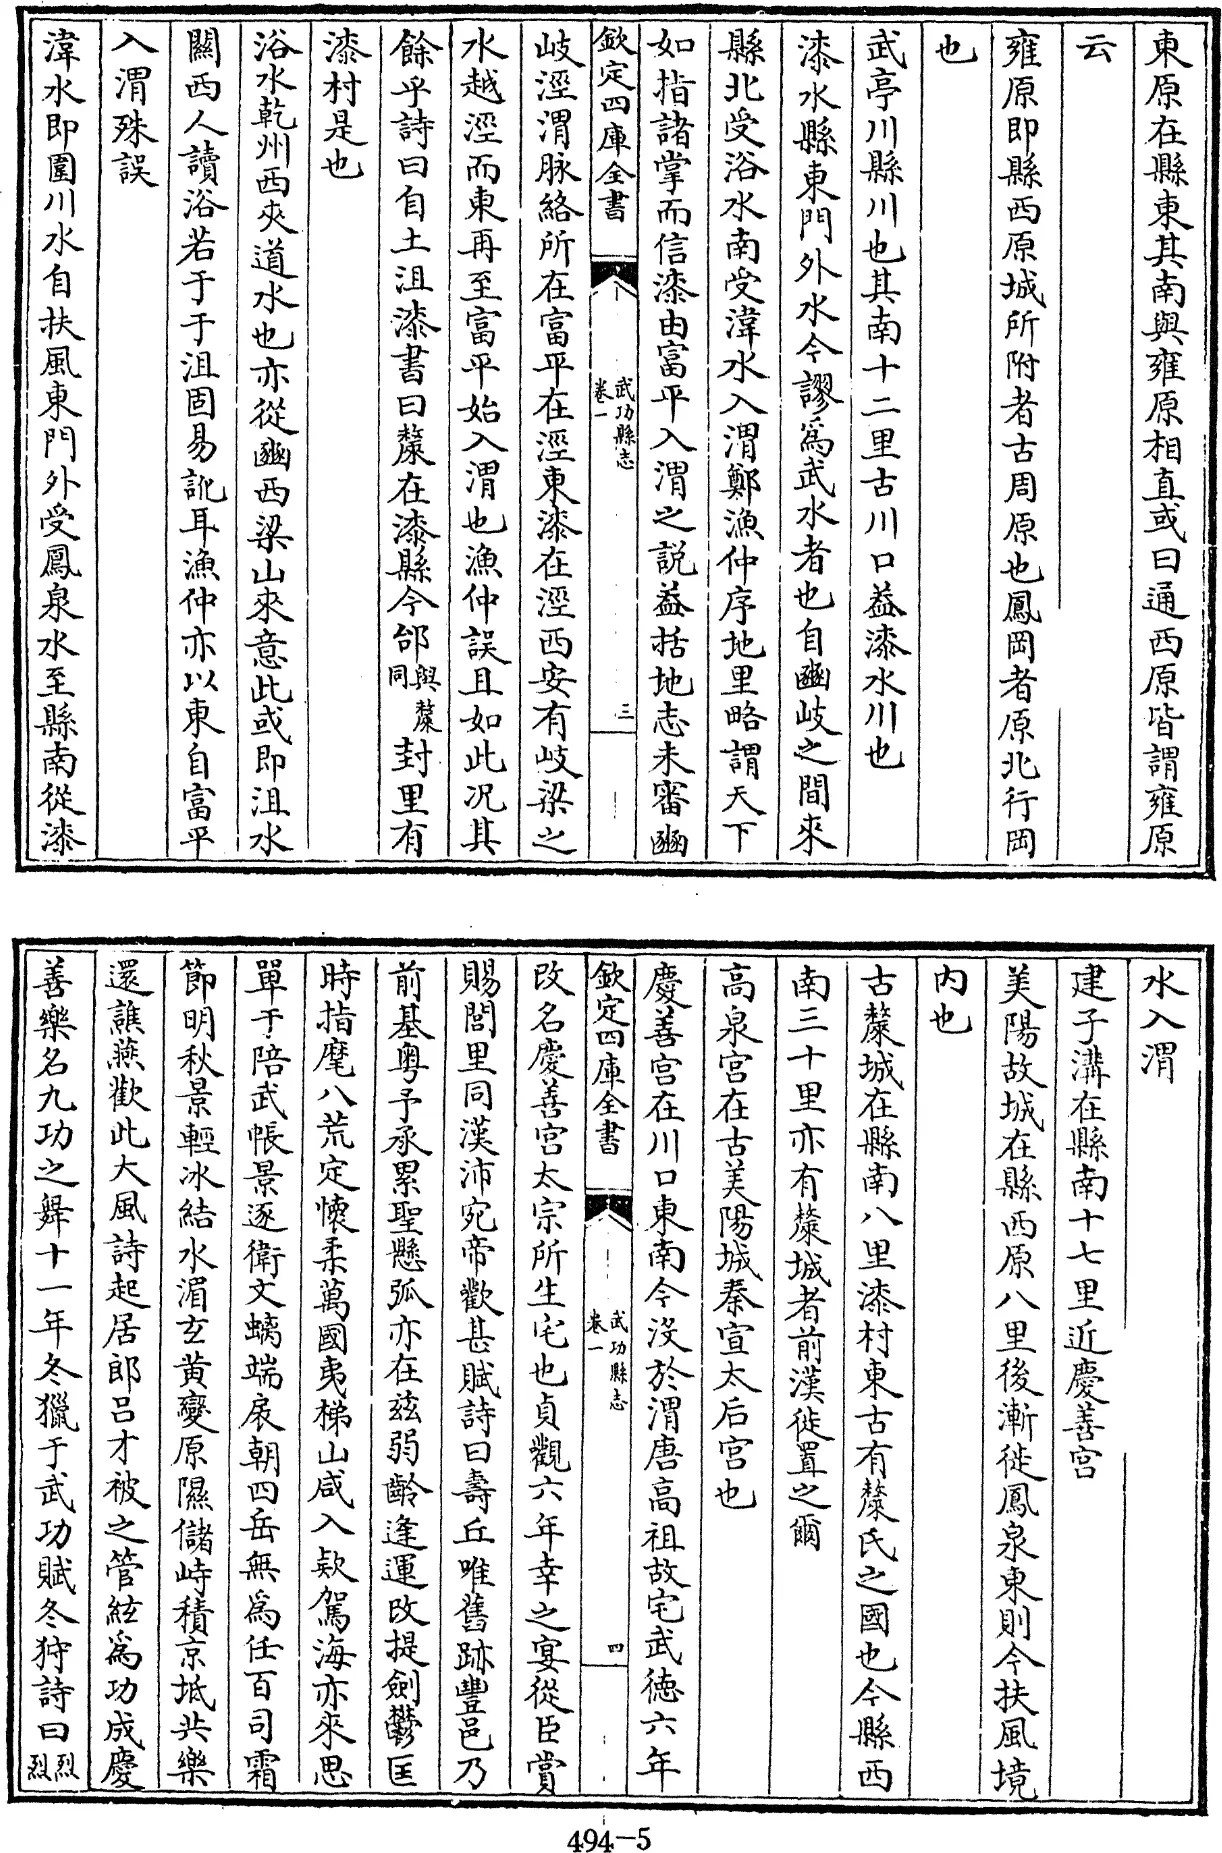 東原在縣東其南與雍原相直或曰通西原皆謂雍原
云
雍原即縣西原城所附者古周原也鳳岡者原北行岡
也
武亭川縣川也其南十二里古川口益漆水川也
漆水縣東門外水今謬爲武水者也自豳岐之間來
縣北受浴水南受湋水入渭鄭漁仲序地里略謂天下
如指諸掌而信漆由富平入渭之説益括地志未審豳
欽定四庫全書
武功縣志
卷一
三
岐涇渭脉絡所在富平在涇東漆在涇西安有岐梁之
水越涇而東再至富平始入渭也漁仲誤且如此况其
餘乎詩曰自土沮漆書曰斄在漆縣今邰與斄同封里有
漆村是也
浴水乾州西夾道水也亦從豳西梁山來意此或即沮水
關西人讀浴若于于沮固易訛耳漁仲亦以東自富平
入渭殊誤
湋水即圍川水自扶風東門外受鳳泉水至縣南從漆
水入渭
建子溝在縣南十七里近慶善宫
美陽故城在縣西原八里後漸徙鳳泉東則今扶風境
内也
古斄城在縣南八里漆村東古有斄氏之國也今縣西
南三十里亦有斄城者前漢徙置之爾
高泉宫在古美陽城秦宣太后宫也
慶善宫在川口東南今沒於渭唐高祖故宅武德六年
欽定四庫全書
武功縣志
卷一
四
改名慶善宫太宗所生宅也貞觀六年幸之宴從臣賞
賜閭里同漢沛宛帝歡甚賦詩曰壽丘唯舊跡豐邑乃
前基粤予承累聖懸弧亦在兹弱齡逢運改提劍鬱匡
時指麾八荒定懷柔萬國夷梯山咸入欵駕海亦來思
單于陪武帳景逐衛文螭端扆朝四岳無爲任百司霜
節明秋景輕冰結水湄玄黄變原隰儲峙積京坻共樂
還譙燕歡此大風詩起居郎吕才被之管絃爲功成慶
善樂名九功之舞十一年冬獵于武功賦冬狩詩曰烈烈
494-5